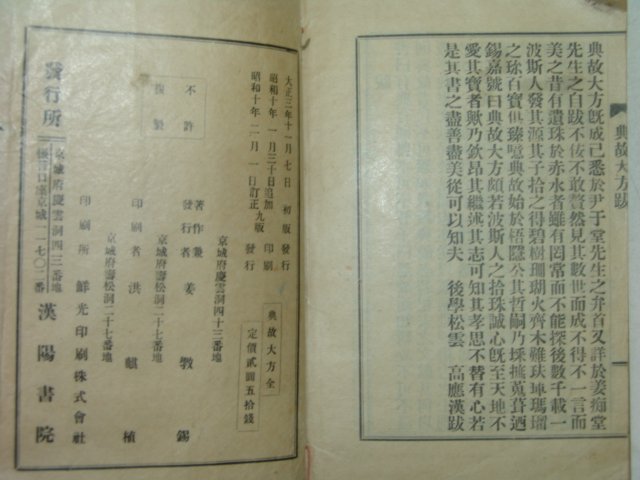 典故大方跋
典故大方既成已悉於尹于堂先生之弁首又詳於姜痴堂
先生之自跋不佞不敢贅然見其數世而成不得不一言而
美之昔有遺珠於赤水者雖有罔常而不能探後數千載一
波斯人發其源其子拾之得碧樹珊瑚火齊木難玞珅瑪瑠
之珎百寶俱臻噫典故始於梧隱公其哲嗣乃採摭蒐葺迺
錫嘉號曰典故大方頗若波斯人之拾珠誠心既至天地不
愛其寶者歟乃欽昂其繼述其志可知其孝思不替有心若
是其書之盡善盡美從可以知夫　後學松雲　高應漢跋
大正三年十一月七日　初版發行
昭和十年一月三十日追加　印刷
昭和十年二月一日訂正九版　發行
典故大方全
定價貳圓五拾錢
不許
複製
京城府慶雲洞四十三番地
著作兼
發行者　姜斅錫
京城府壽松洞二十七番地
印刷者　洪麒植
京城府壽松洞二十七番地
印刷所　鮮光印刷株式會社
京城府慶雲洞四三番地
發行所　漢陽書院
振替口座京城一一七〇二番